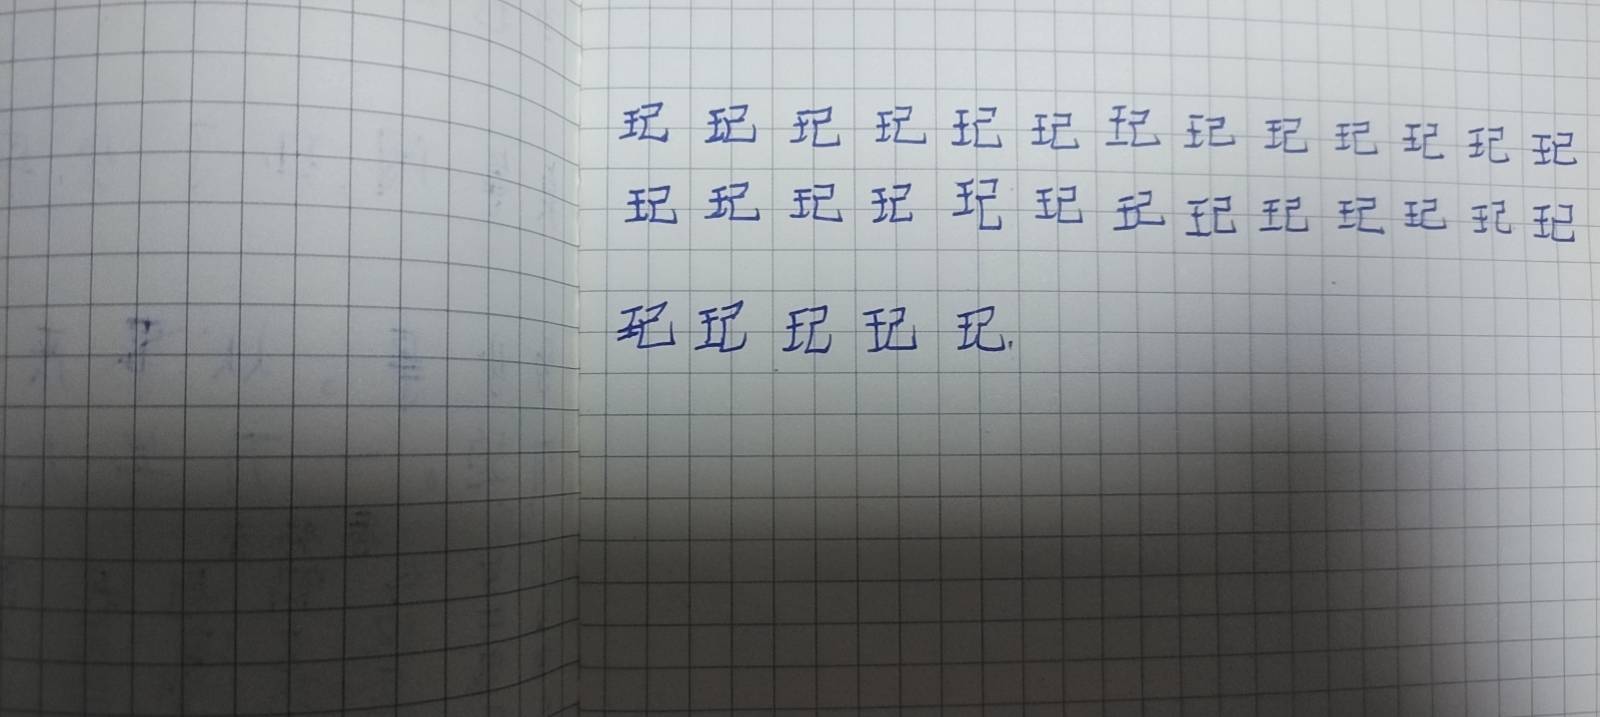 玘 玘 玘 玘 玘 玘 玘 玘 玘 玘 玘 玘 玘
玘 玘 玘 玘 玘 玘 玘 玘 玘 玘 玘 玘 玘
玘 玘 玘 玘 玘.